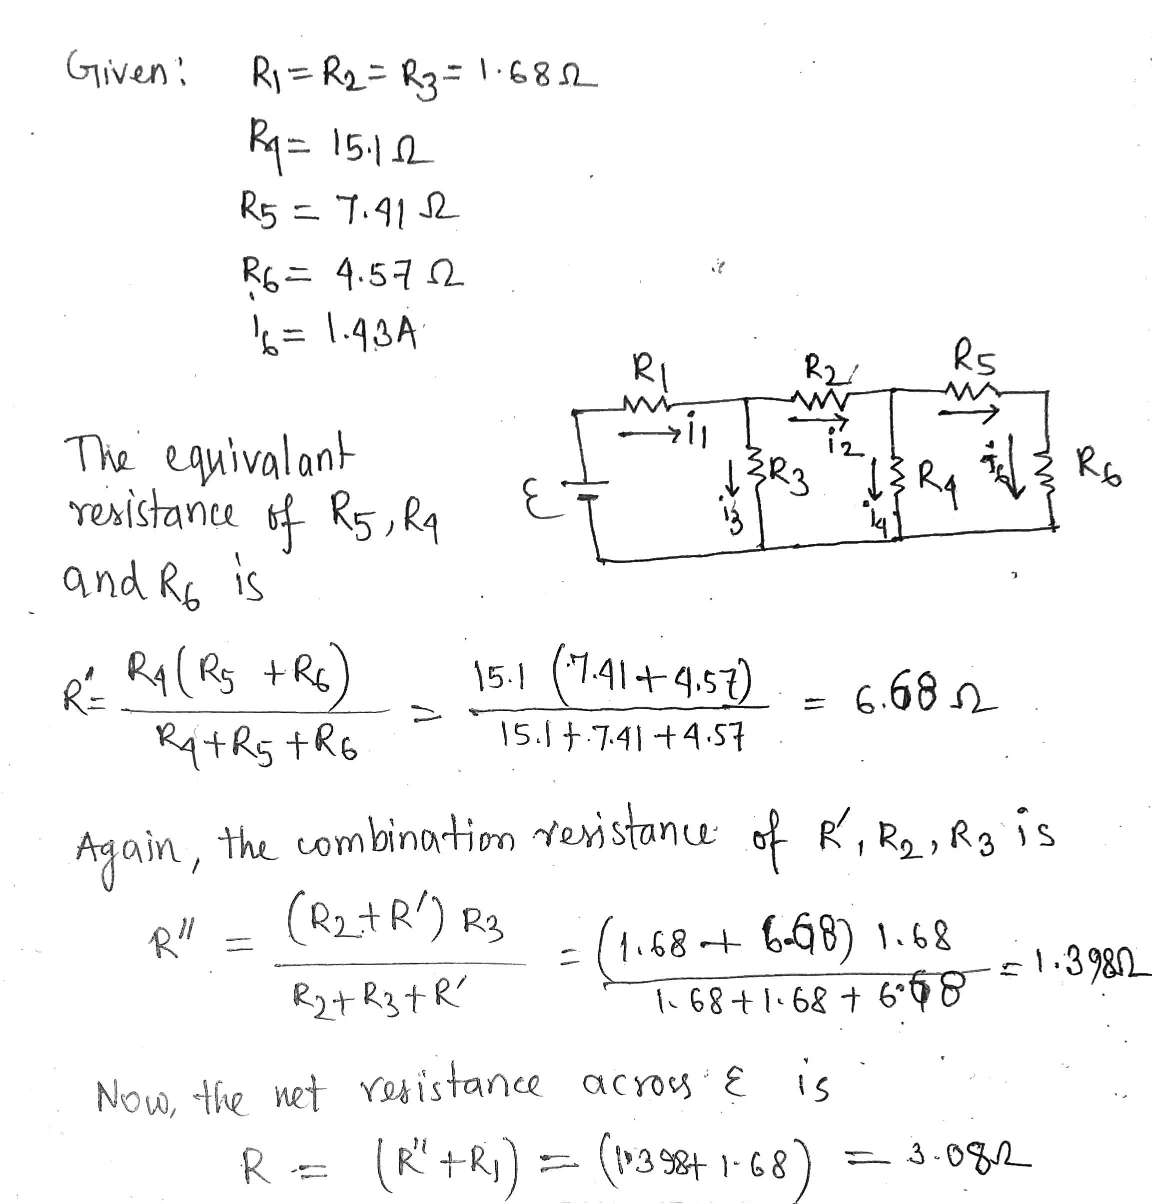 Given: R1 = R2 = R3 = 1.68 Ω
R4 = 15.1 Ω
R5 = 7.41 Ω
R6 = 4.57 Ω
i6 = 1.43A
R1 R2 R5
i1 i2
ε R3 R4 i6 R6
i3 i4
The equivalant
resistance of R5, R4
and R6 is
R' = R4(R5 + R6) / R4 + R5 + R6 = 15.1 (7.41 + 4.57) / 15.1 + 7.41 + 4.57 = 6.68 Ω
Again, the combination resistance of R', R2, R3 is
R'' = (R2 + R') R3 / R2 + R3 + R' = (1.68 + 6.68) 1.68 / 1.68 + 1.68 + 6.68 = 1.398Ω
Now, the net resistance across ε is
R = (R'' + R1) = (1.398 + 1.68) = 3.08Ω